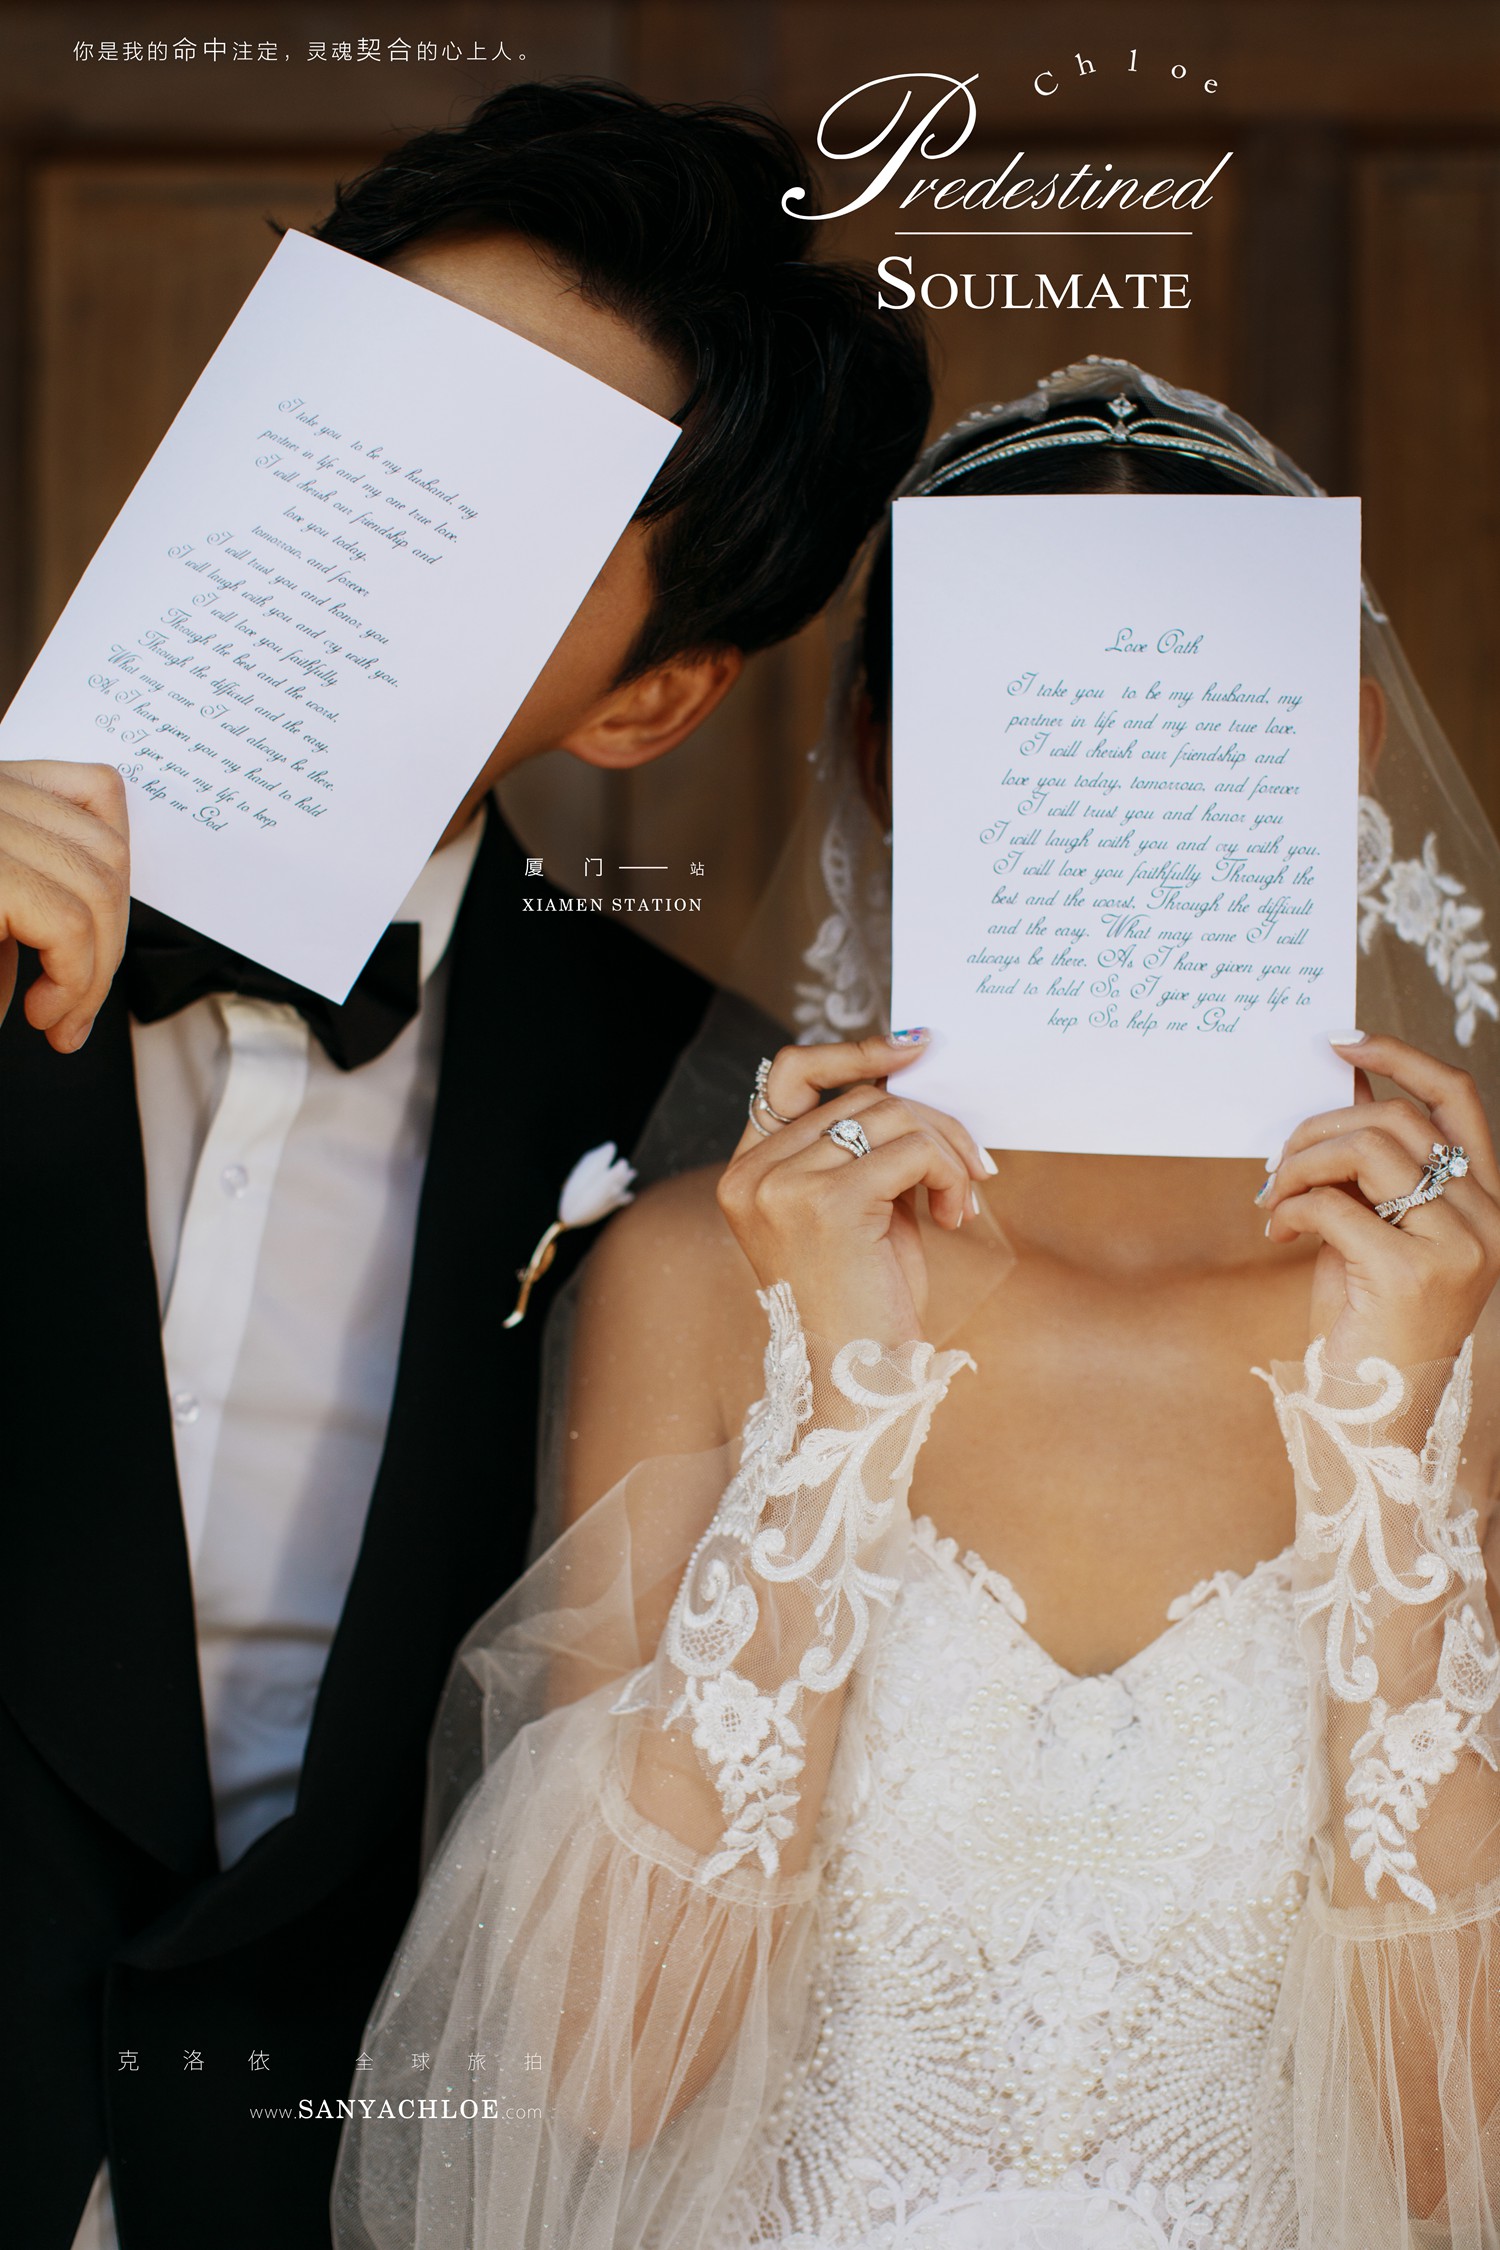 你是我的命中注定，灵魂契合的心上人。
Chloe
Predestined
SOULMATE
I take you to be my husband, my
partner in life and my one true love.
I will cherish our friendship and
love you today,
tomorrow, and forever
I will trust you and honor you
I will laugh with you and cry with you.
I will love you faithfully
Through the best and the worst,
Through the difficult and the easy.
What may come I will always be there.
As I have given you my hand to hold
So I give you my life to keep
So help me God
Love Oath
I take you to be my husband, my
partner in life and my one true love.
I will cherish our friendship and
love you today, tomorrow, and forever
I will trust you and honor you
I will laugh with you and cry with you.
I will love you faithfully Through the
best and the worst. Through the difficult
and the easy. What may come I will
always be there. As I have given you my
hand to hold So I give you my life to
keep So help me God
厦门——站
XIAMEN STATION
克洛依 全球旅拍
www.SANYACHLOE.com